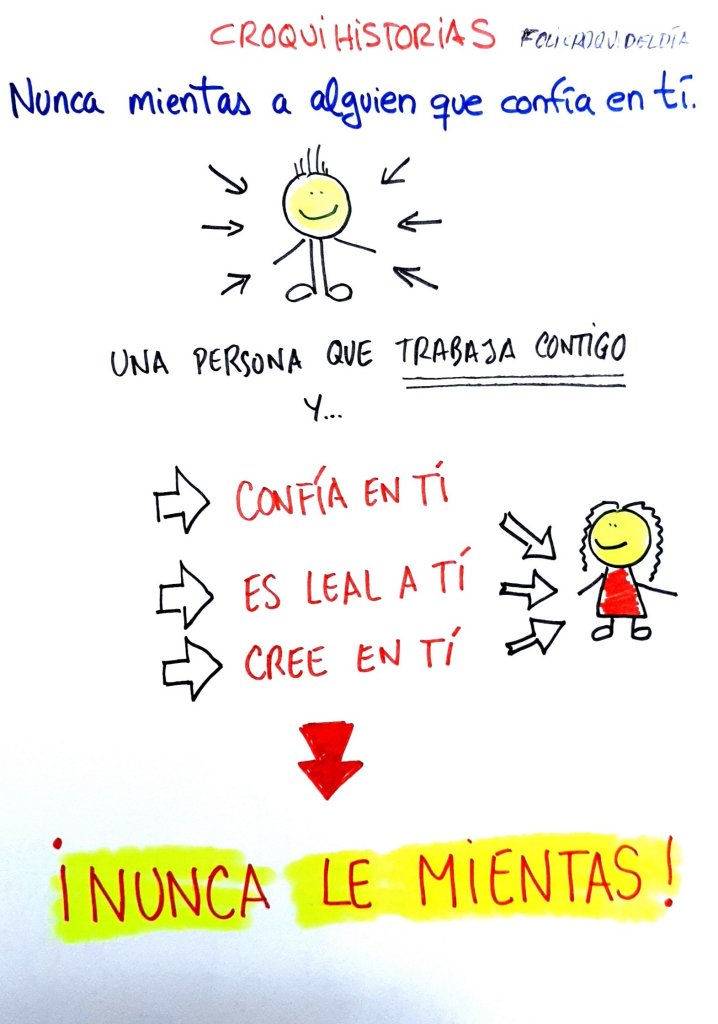 CROQUIHISTORIAS
Nunca mientas a alguien que confía en tí.
UNA PERSONA QUE TRABAJA CONTIGO
Y...
CONFÍA EN TÍ
ES LEAL A TÍ
CREE EN TÍ
¡NUNCA LE MIENTAS!